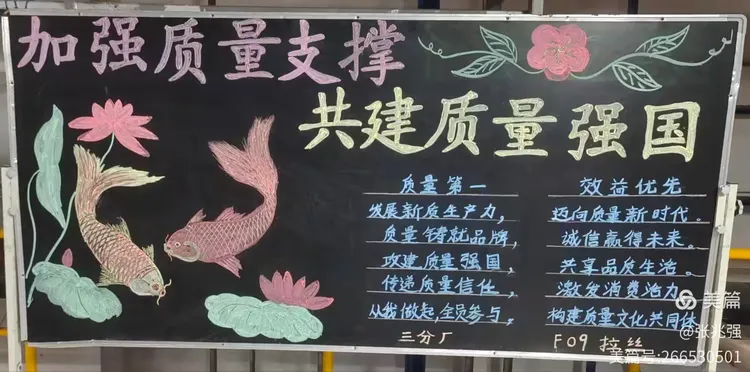 加强质量支撑
共建质量强国
质量第一
发展新质生产力，
质量铸就品牌，
攻建质量强国，
传递质量信任，
从我做起，全员参与。
三分厂
效益优先
迈向质量新时代。
诚信赢得未来。
共享品质生活。
激发消费活力
构建质量文化共同体
F09 拉丝
美篇
@张兆强
美篇号:266530501